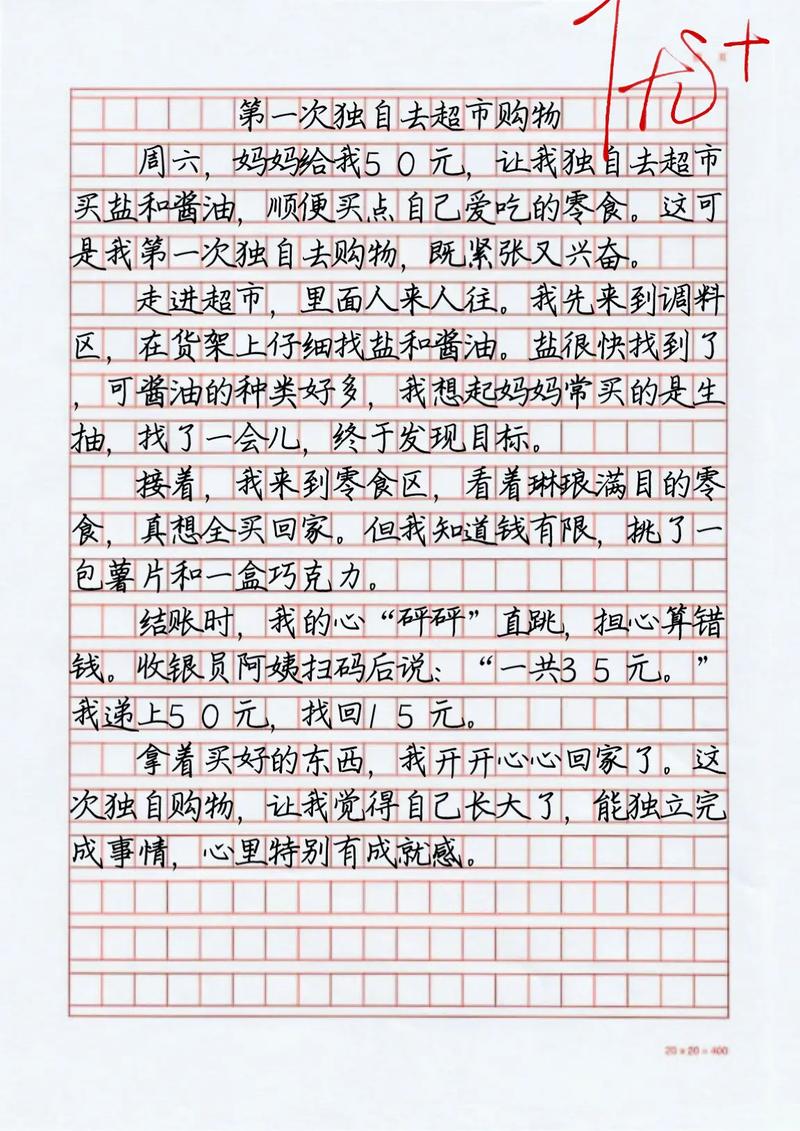 优+
第一次独自去超市购物
周六，妈妈给我50元，让我独自去超市
买盐和酱油，顺便买点自己爱吃的零食。这可
是我第一次独自去购物，既紧张又兴奋。
走进超市，里面人来人往。我先来到调料
区，在货架上仔细找盐和酱油。盐很快找到了
，可酱油的种类好多，我想起妈妈常买的是生
抽，找了一会儿，终于发现目标。
接着，我来到零食区，看着琳琅满目的零
食，真想全买回家。但我知道钱有限，挑了一
包薯片和一盒巧克力。
结账时，我的心“砰砰”直跳，担心算错
钱。收银员阿姨扫码后说：“一共35元。”
我递上50元，找回15元。
拿着买好的东西，我开开心心回家了。这
次独自购物，让我觉得自己长大了，能独立完
成事情，心里特别有成就感。
20×20=400